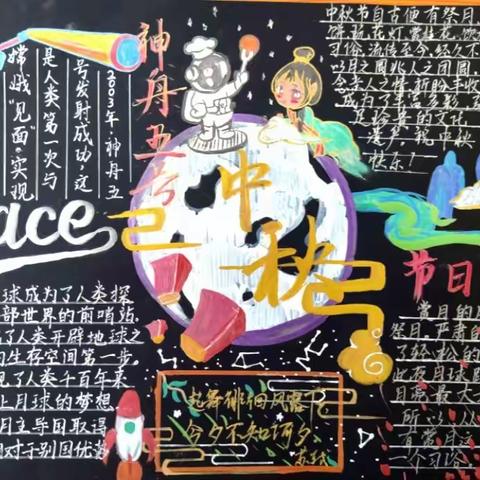 神舟五号
2003年,神舟五
号发射成功,这
是人类第一次与
嫦娥"见面"。实现
ace
球成为了人类探
部世界的前哨站,
了人类开辟地球之
生存空间第一步。
见了人类千百年来
上月球的梦想
月主导国取得
对于别国优势
中秋
起舞徘徊风露下
今夕不知何夕
苏轼
中秋节自古便有祭月、
饼、玩花灯、赏桂花、饮
习俗,流传至今,经久不
以月之圆兆人之团圆,
念亲人之情,祈盼丰收
成为丰富多彩、
足珍贵的文化
遗产,祝中秋
快乐!
节日
赏月的
祭月,严肃的
了轻松的
此夜月球距
月亮最大
所以从
有赏月这
一个习俗。